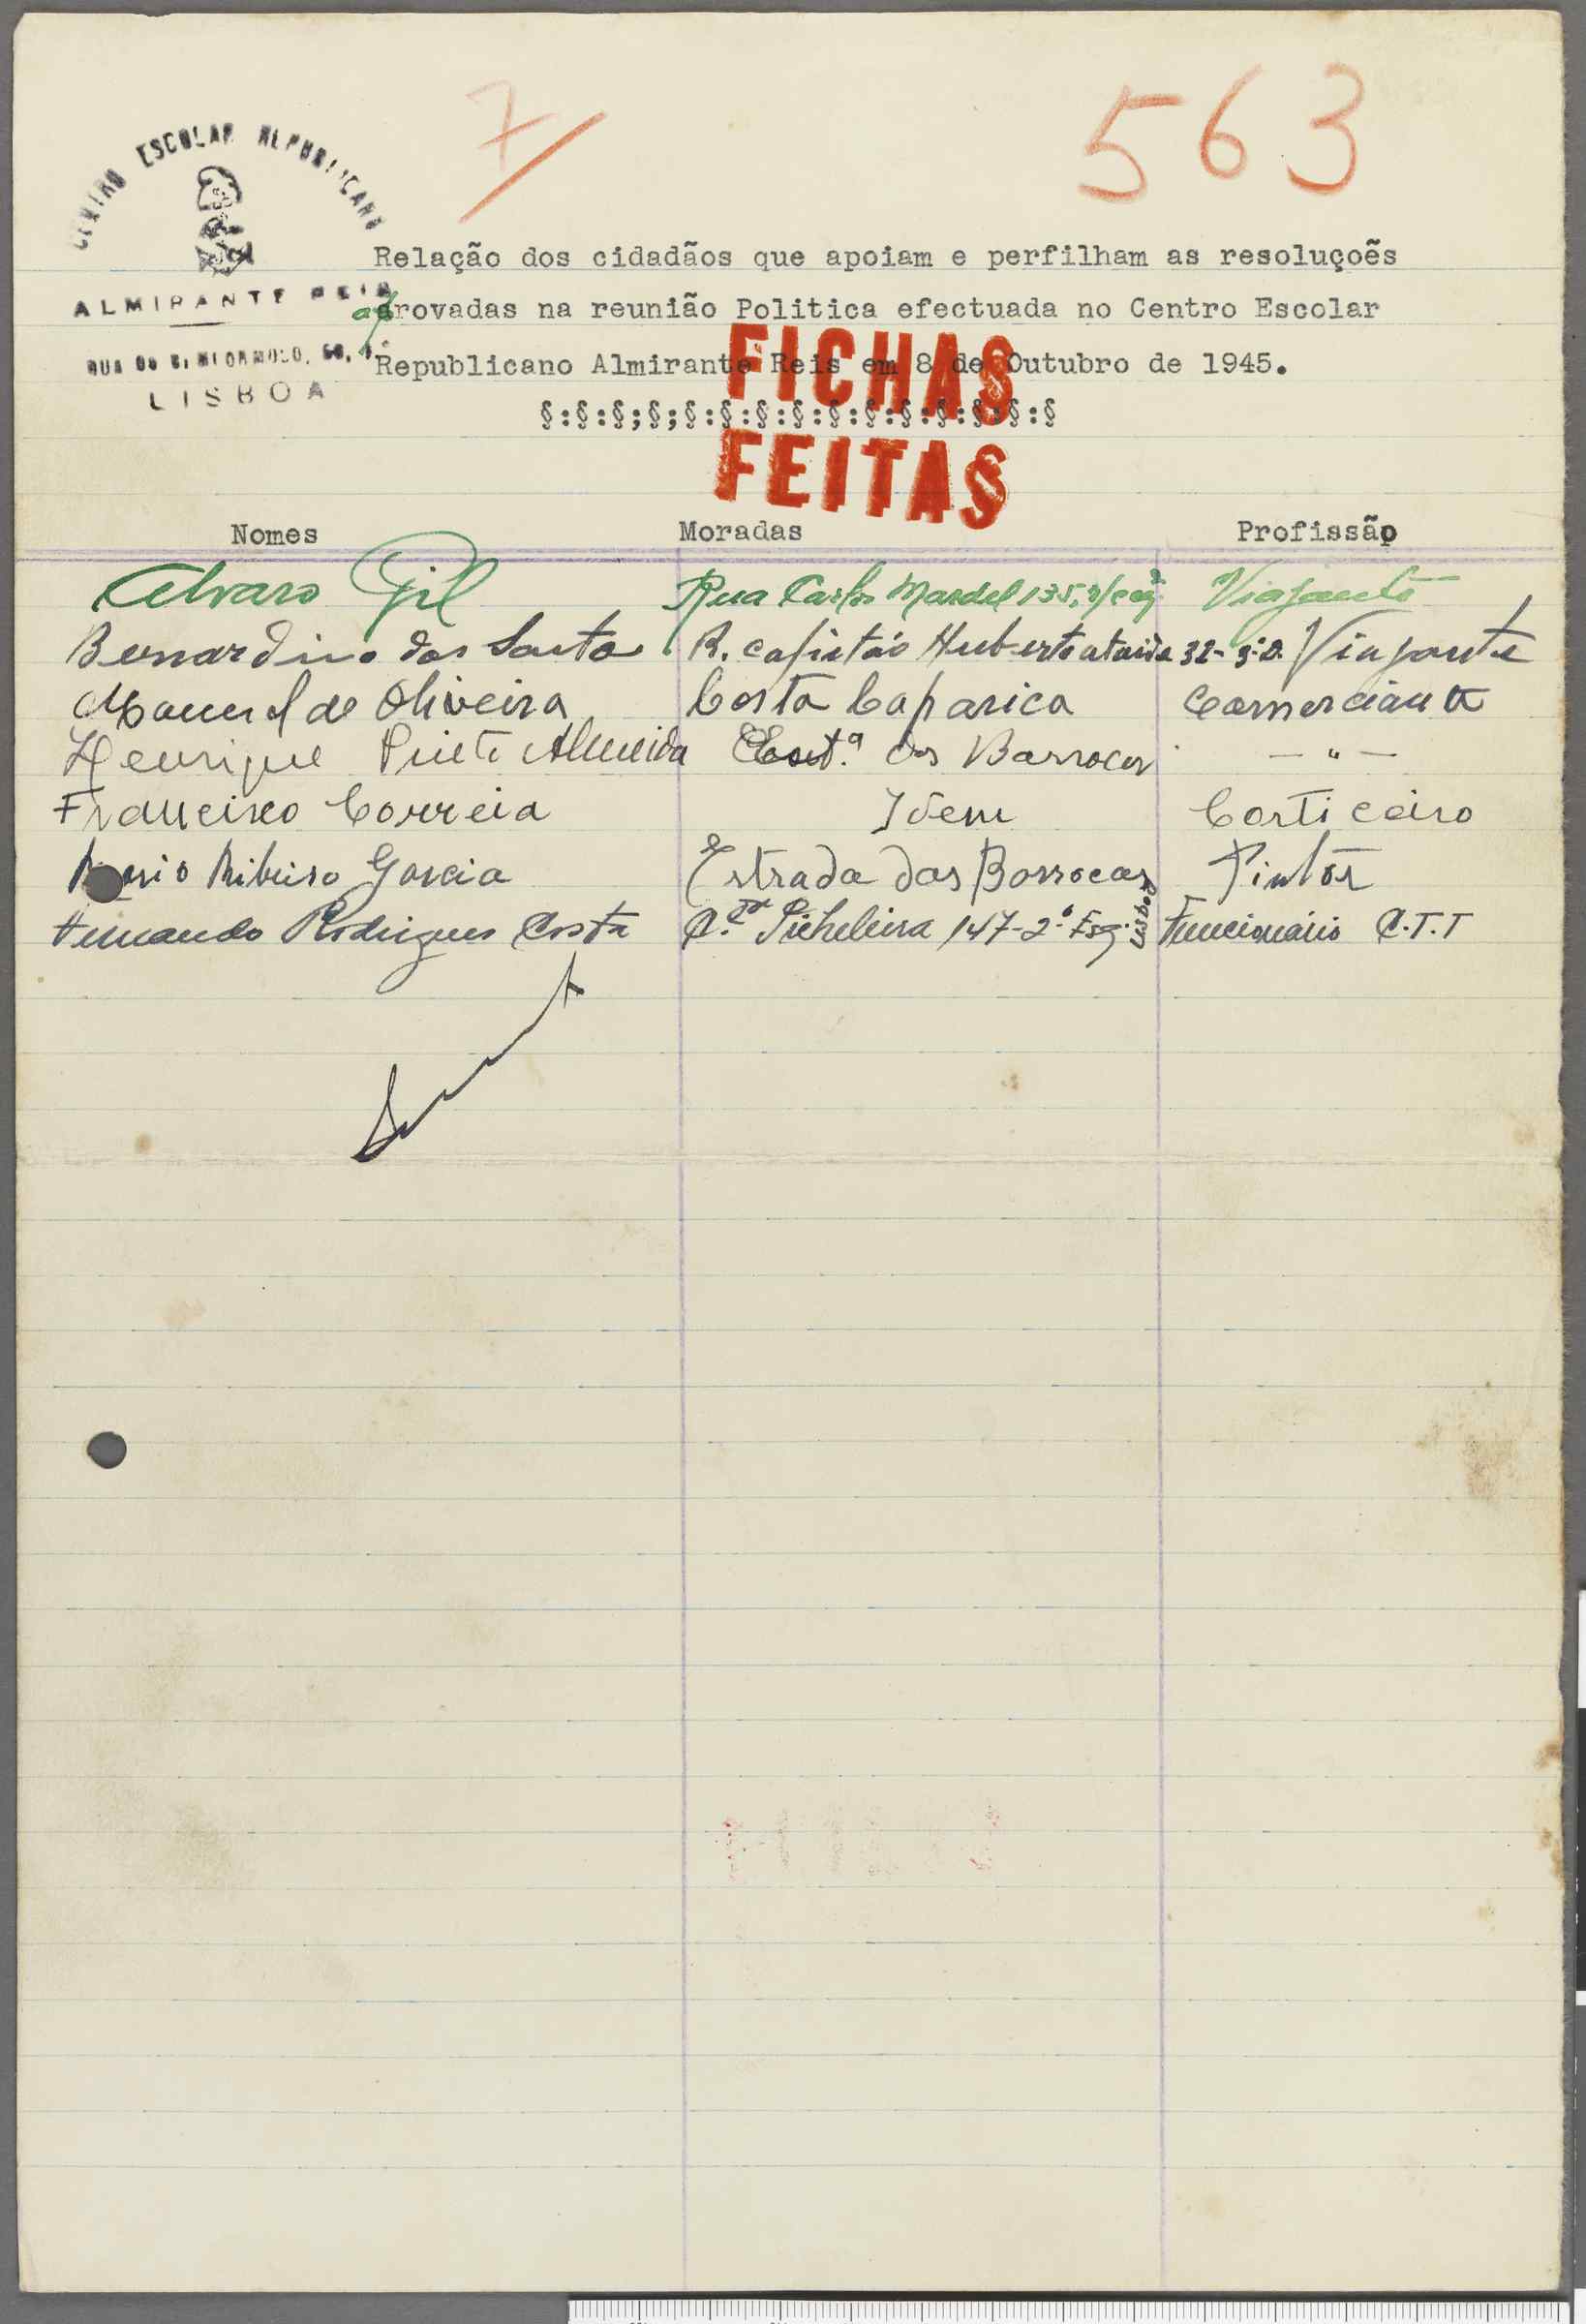 7
563
CENTRO ESCOLAR REPUBLICANO
ALMIRANTE REIS
RUA DO BEMFORMOSO, 50, 1º
LISBOA
Relação dos cidadãos que apoiam e perfilham as resoluçoẽs
aprovadas na reunião Politica efectuada no Centro Escolar
Republicano Almirante Reis em 8 de Outubro de 1945.
§:§:§;§;§:§:§:§:§:§:§:§:§:§:§
FICHAS
FEITAS
Nomes Moradas Profissão
Alvaro Gil Rua Carlos Mardel 135, Viajante
Bernardino dos Santos R. capitão Huberto ataide 32-3º D. Viajante
Manuel de Oliveira Costa Caparica Comerciante
Henrique Almeida Est.ª das Barrocas — " —
Francisco Correia Idem Corticeiro
Ribeiro Garcia Estrada das Barrocas Pintor
Fernando Rodrigues Costa C.ª Picheleira 147-2º Esq. Lisboa Funcionário C.T.T